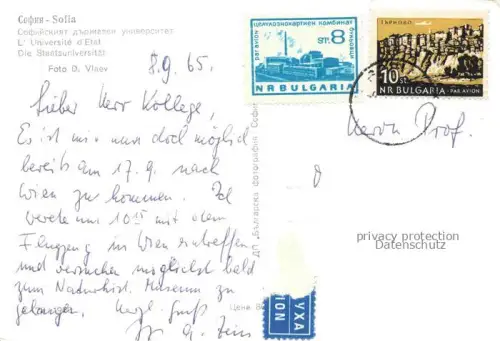 София - Sofia
Софийският държавен университет
L' Université d'Etat
Die Staatsuniversität
Foto D. Vlaev
8.9.65.
Lieber Herr Kollege,
Es ist mir nun doch möglich
bereits am 17.9. nach
Wien zu kommen. Ich
werde um 10 15 mit dem
Flugzeug in Wien eintreffen
und versuchen möglichst bald
zum Naturhist. Museum zu
gelangen. Herzl. Gruß
ДП „Българска фотография" София
Цена
PAR AVION
ЦЕЛУЛОЗНОХАРТИЕН КОМБИНАТ
ST. 8
NR BULGARIA
ТЪРНОВО
10 St.
NR BULGARIA - PAR AVION
Herrn Prof.
privacy protection
Datenschutz